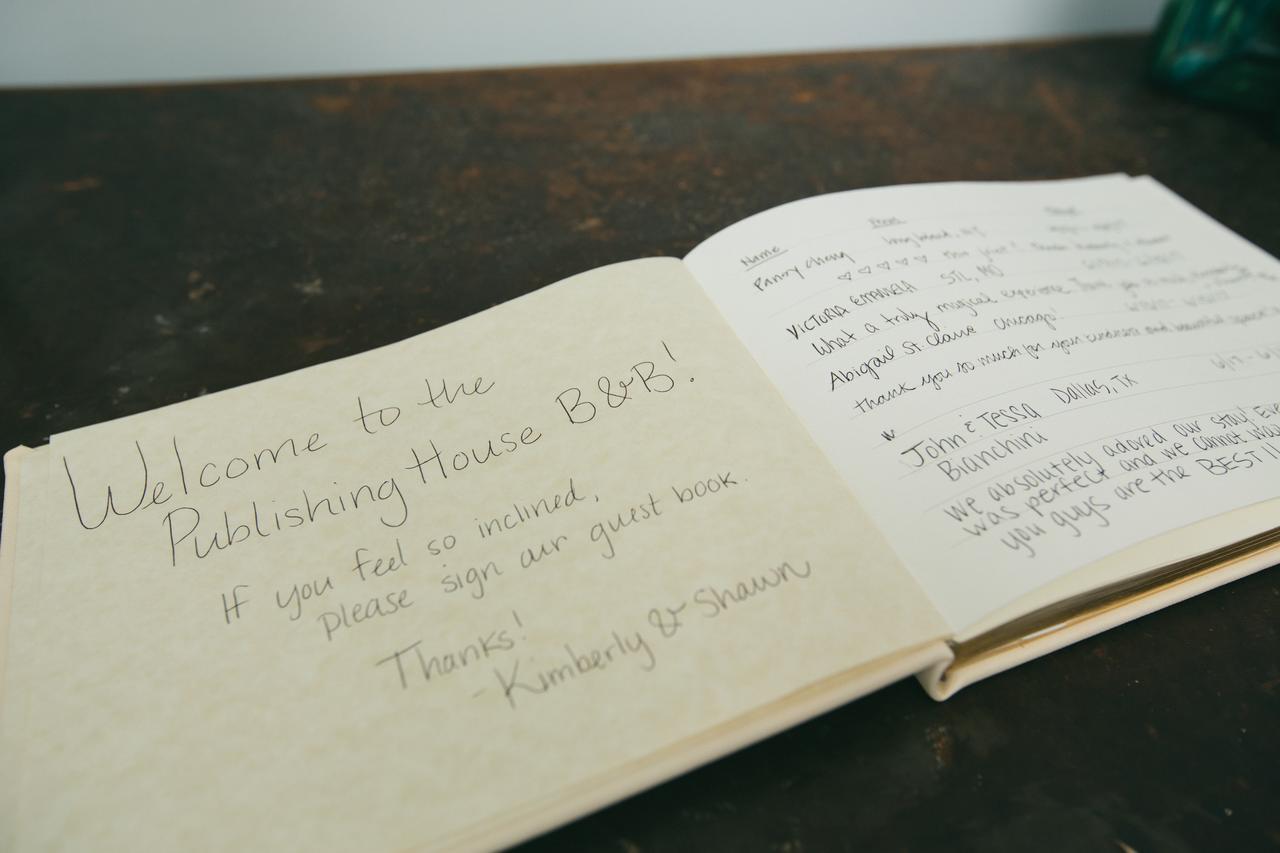 Welcome to the
Publishing House B&B!
If you feel so inclined,
please sign our guest book.
Thanks!
-Kimberly & Shawn
Name
♡ ♡ ♡ ♡ ♡
VICTORIA STL, MO
What a truly magical experience. Thank you
Abigail St. Claire Chicago!
thank you so much for your kindness and beautiful
John & Tessa Dallas, TX
Bianchini
We absolutely adored our stay!
was perfect and we cannot
you guys are the BEST!!